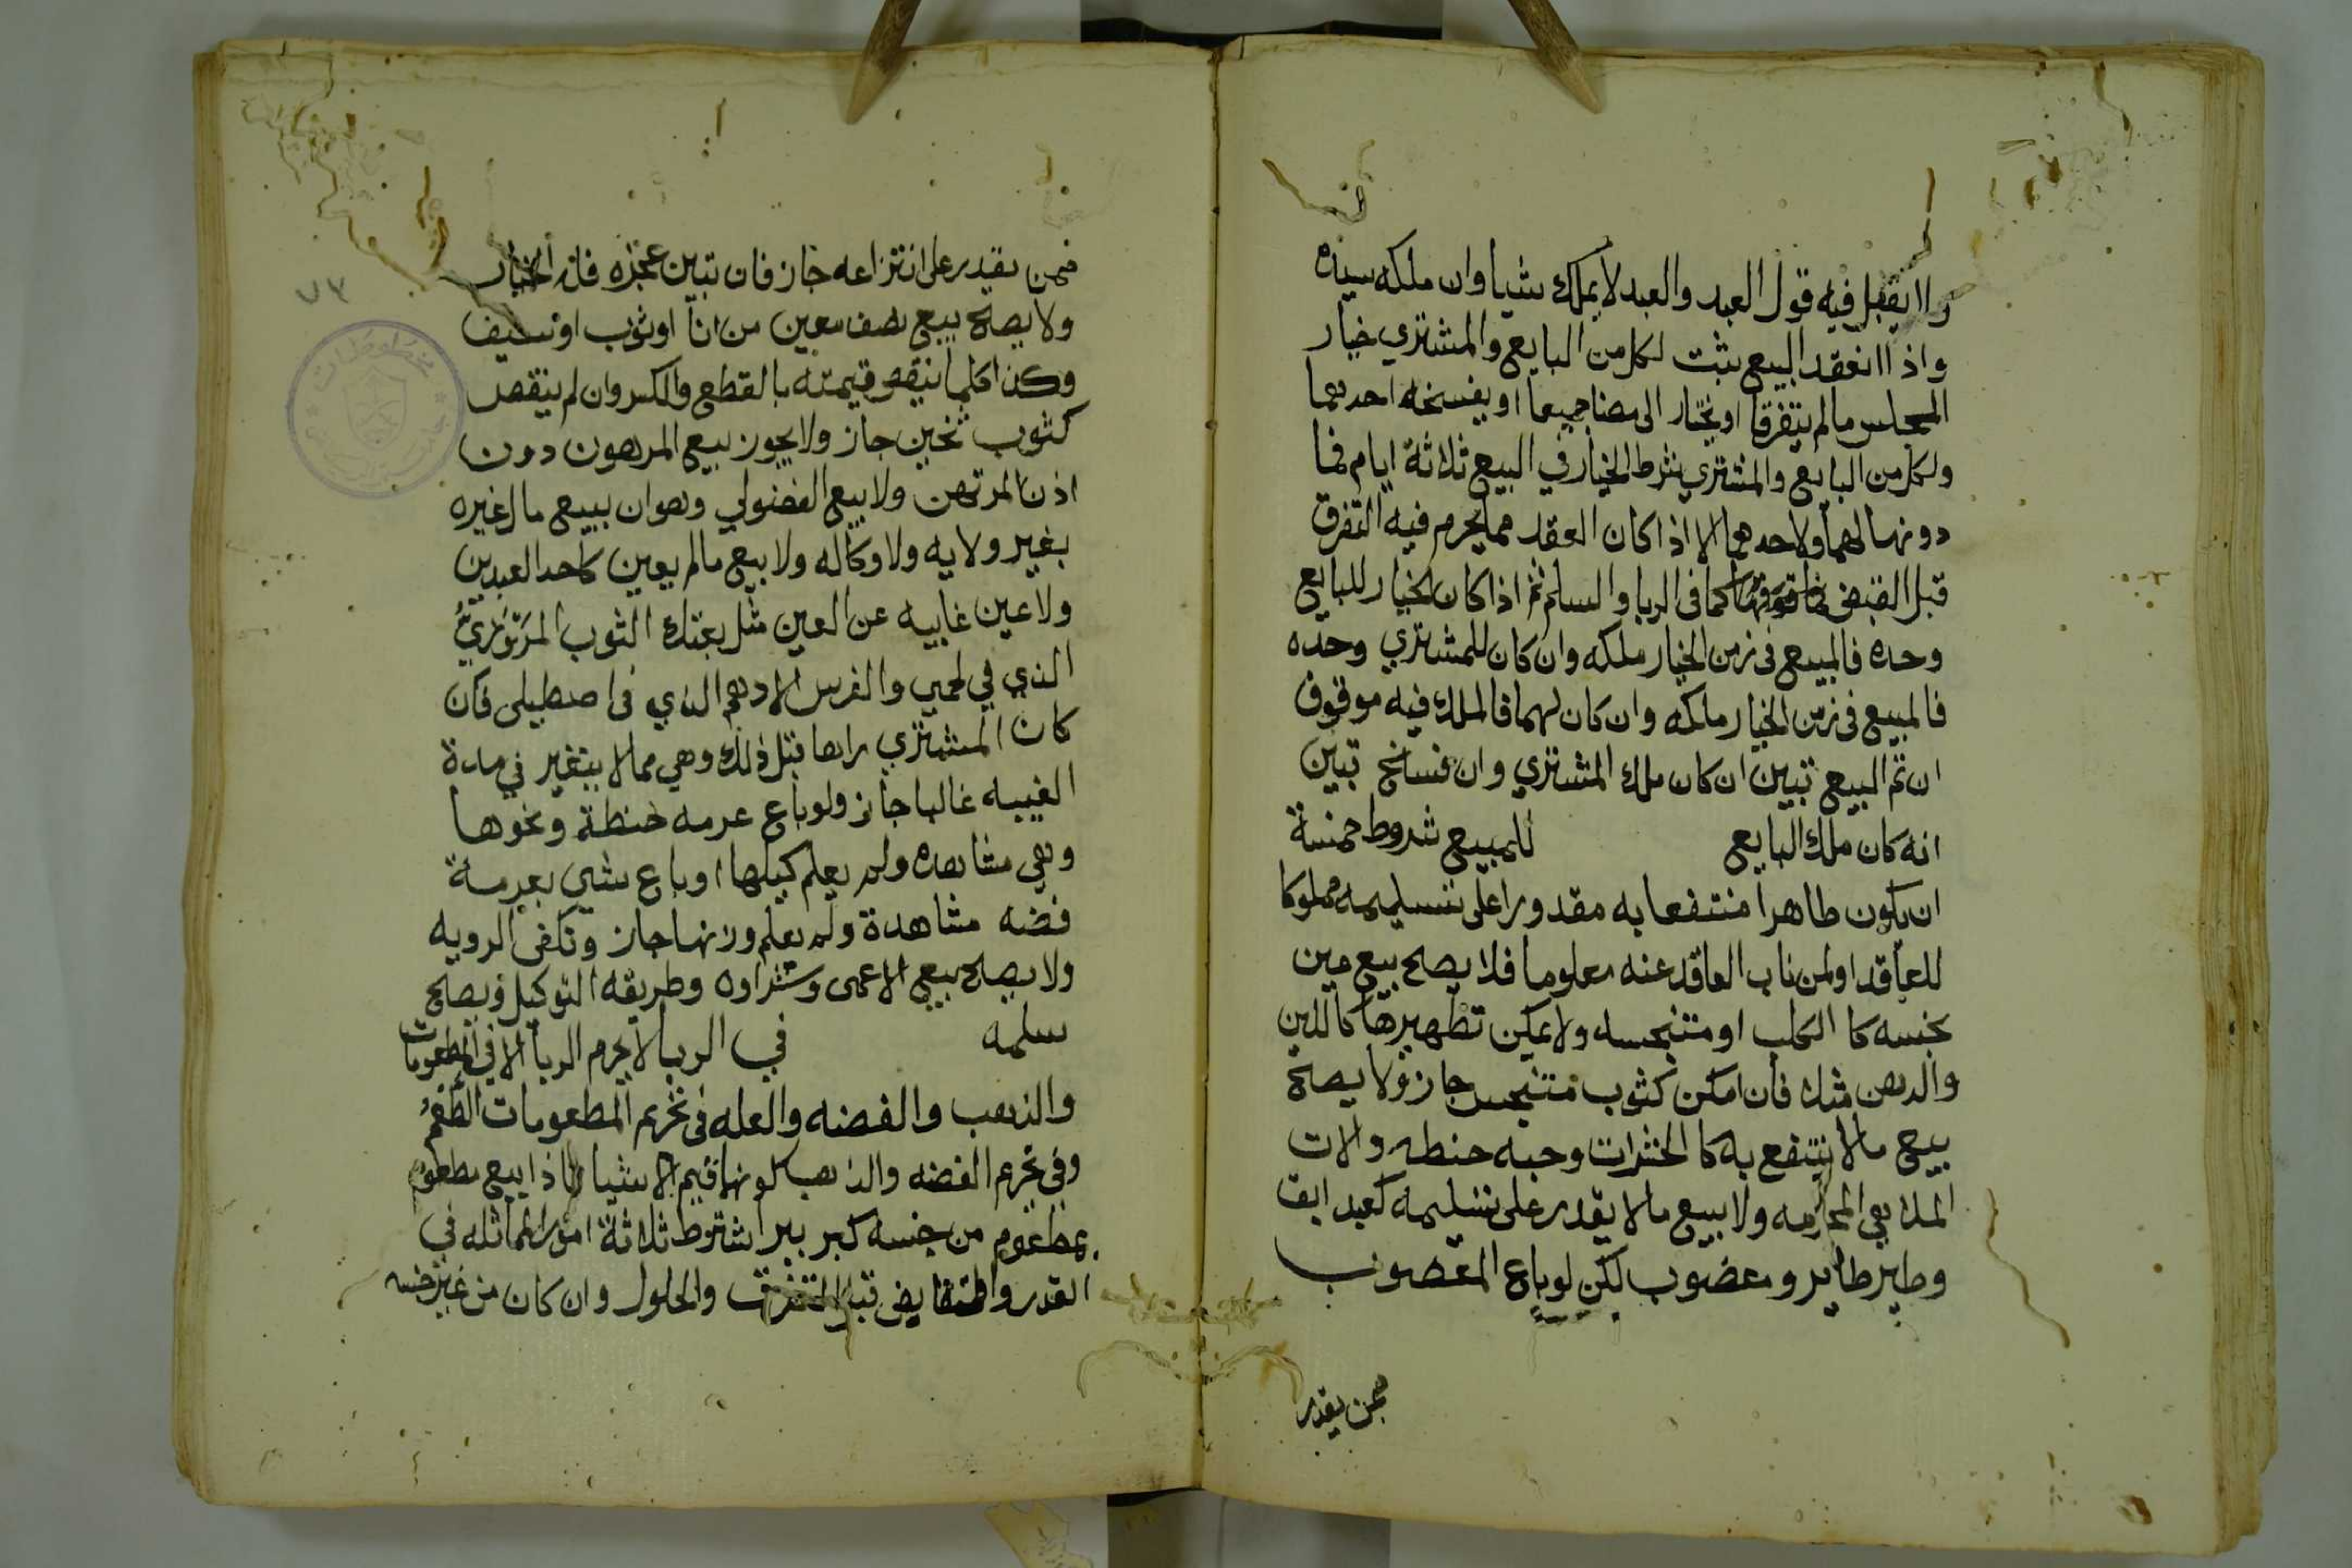 ولا يقبل فيه قول العبد والعبد لا يملك شيا وان ملكه سيده
واذا انعقد البيع يثبت لكل من البايع والمشتري خيار
المجلس مالم يتفرقا او يختار الى مضا جميعا او يفسخه احدهما
ولكل من البايع والمشتري شرط الخيار في البيع ثلاثة ايام فما
دونها لهما ولاحدهما الا اذا كان العقد مما يحرم فيه التفرق
قبل القبض كما في الربا والسلم ثم اذا كان الخيار للبايع
وحده فالمبيع في زمن الخيار ملكه وان كان للمشتري وحده
فالمبيع في زمن الخيار ملكه وان كان لهما فالملك فيه موقوف
ان تم البيع تبين ان كان ملك المشتري وان فسخ تبين
انه كان ملك البايع للمبيع شروط خمسة
ان يكون طاهرا منتفعا به مقدورا على تسليمه مملوكا
للعاقد او لمن ناب العاقد عنه معلوما فلا يصح بيع عين
نجسه كا الكلب او متنجسه ولا يمكن تطهيرها كاللبن
والدهن مثلا فان امكن كثوب متنجس جاز ولا يصح
بيع مالا ينتفع به كا الحشرات وحبه حنطه والات
الملاهي المحرمه ولا بيع مالا يقدر على تسليمه كعبد ابق
وطير طاير ومغصوب لكن لو باع المغصوب
ممن يقدر
ممن يقدر على انتزاعه جاز فان تبين عجزه فله الخيار
ولا يصح بيع نصف معين من انا او ثوب او سيف
وكذا كلما ينقص قيمته بالقطع والكسر وان لم ينقص
كثوب ثخين جاز ولا يجوز بيع المرهون دون
اذن المرتهن ولا بيع الفضولي وهو ان يبيع مال غيره
بغير ولايه ولا وكاله ولا بيع مالم يعين كاحد العبدين
ولا عين غايبه عن العين مثل بعتك الثوب المروزي
الذي في كمي والفرس الادهم الذي في اصطبلي فان
كان المشتري راها قبل ذلك وهي مما لا يتغير في مدة
الغيبه غالبا جاز ولو باع عرمه حنطة ونحوها
وهي مشاهده ولم يعلم كيلها او باع شي بعرمة
فضه مشاهدة ولم يعلم وزنها جاز وتكفي الرويه
ولا يصح بيع الاعمى وشراوه وطريقه التوكيل ويصح
سلمه في الربا لا يحرم الربا الا في المطعومات
والذهب والفضه والعله في تحريم المطعومات الطعم
وفي تحريم الفضه والذهب كونهما قيم الاشيا فاذا بيع مطعوم
بمطعوم من جنسه كبر ببر اشترط ثلاثة امور المماثله في
القدر والتقابض قبل التفرق والحلول وان كان من غير جنسه